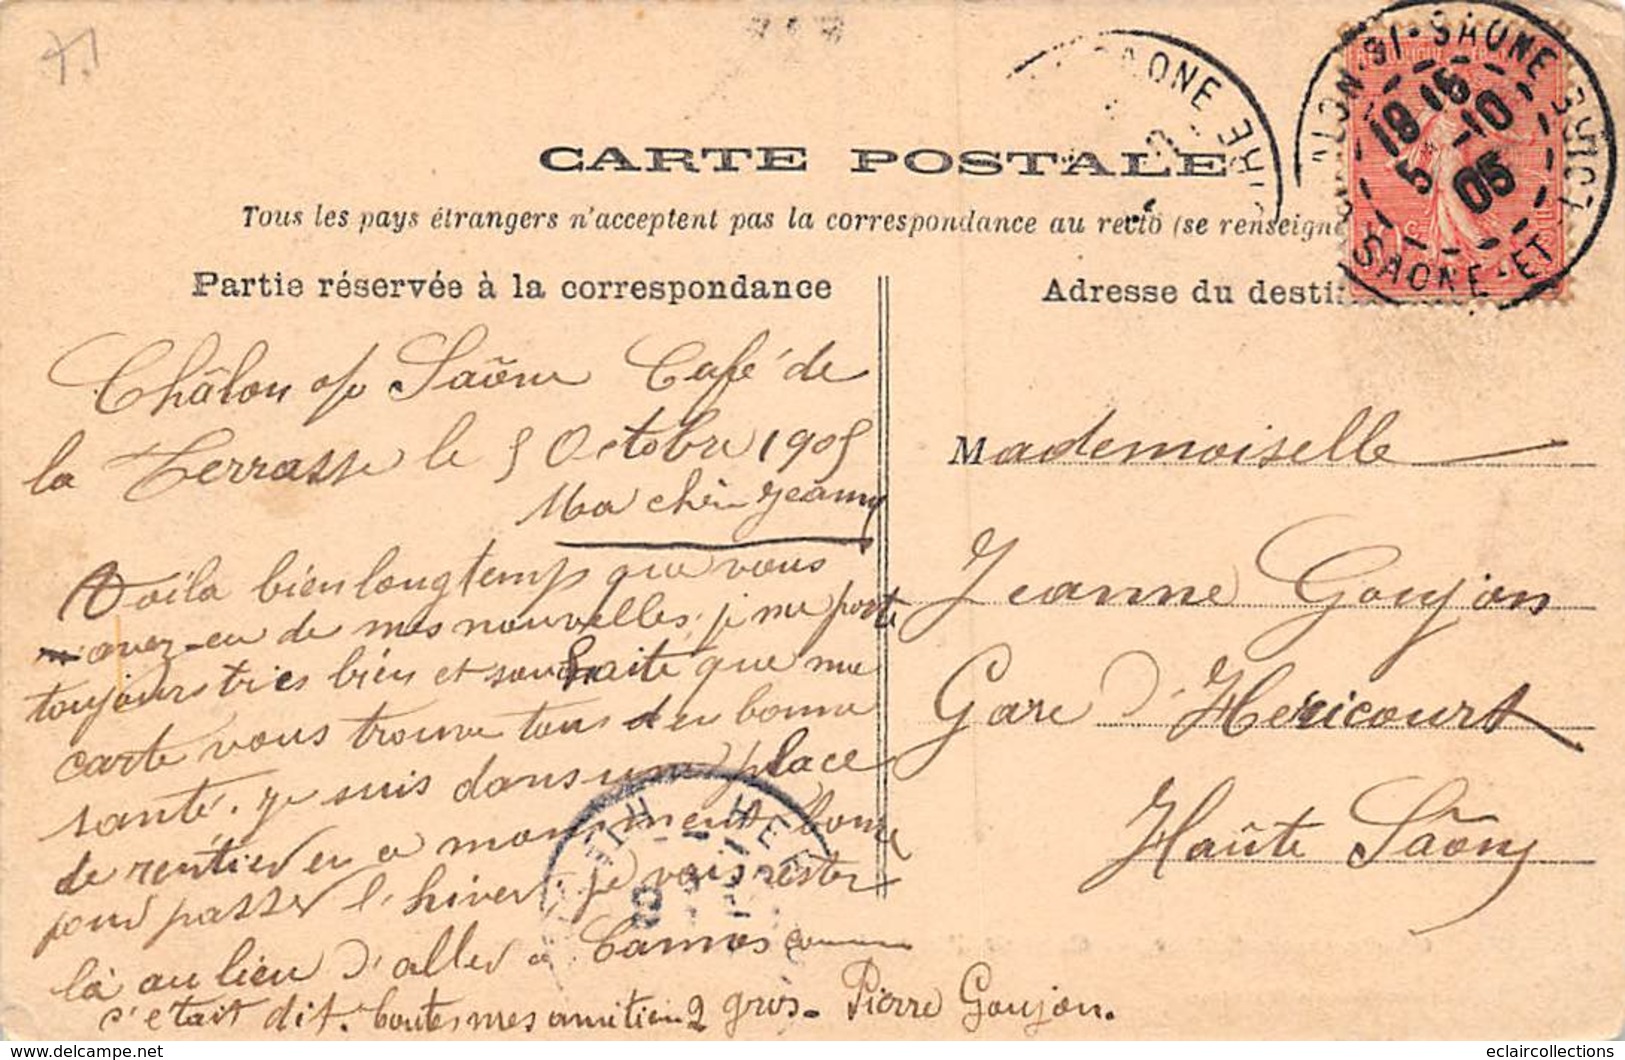 CARTE POSTALE
Tous les pays étrangers n'acceptent pas la correspondance au recto (se renseigne
Partie réservée à la correspondance
Adresse du desti
Châlon s/s Saône Café de
la Terrasse le 5 Octobre 1905
Ma chère Jeanne
Voila bien longtemps que vous
avez eu de mes nouvelles. je me porte
toujours très bien et souhaite que ma
carte vous trouve tous en bonne
santé. je suis dans une place
de rentier en a moment bonne
pour passer l'hiver. je vais rester
là au lieu d'aller a Cannes comme
c'etait dit. toutes mes amitiers 2 gros. Pierre Goujon.
Mademoiselle
Jeanne Goujon
Gare d'Hericourt
Haûte Saône
LON-S/-SAONE
SAONE-ET
18 15
5 -10
05
AONE
HER
eclaircollections